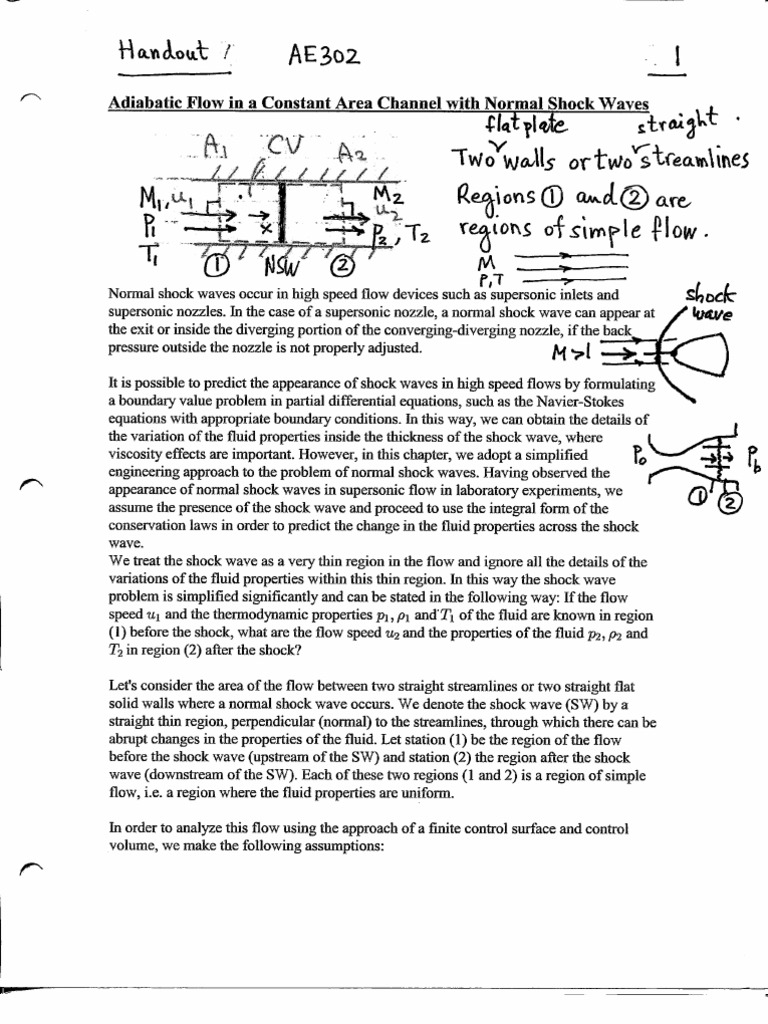 Handout 1 AE302 1
Adiabatic Flow in a Constant Area Channel with Normal Shock Waves
flat plate straight
Two walls or two streamlines
Regions ① and ② are
regions of simple flow.
A1 CV A2
M1, u1 M2
u2
P1 x P2, T2
T1
① NSW ②
M
P,T
Normal shock waves occur in high speed flow devices such as supersonic inlets and
supersonic nozzles. In the case of a supersonic nozzle, a normal shock wave can appear at
the exit or inside the diverging portion of the converging-diverging nozzle, if the back
pressure outside the nozzle is not properly adjusted.
shock
wave
M>1
It is possible to predict the appearance of shock waves in high speed flows by formulating
a boundary value problem in partial differential equations, such as the Navier-Stokes
equations with appropriate boundary conditions. In this way, we can obtain the details of
the variation of the fluid properties inside the thickness of the shock wave, where
viscosity effects are important. However, in this chapter, we adopt a simplified
engineering approach to the problem of normal shock waves. Having observed the
appearance of normal shock waves in supersonic flow in laboratory experiments, we
assume the presence of the shock wave and proceed to use the integral form of the
conservation laws in order to predict the change in the fluid properties across the shock
wave.
Po Pb
① ②
We treat the shock wave as a very thin region in the flow and ignore all the details of the
variations of the fluid properties within this thin region. In this way the shock wave
problem is simplified significantly and can be stated in the following way: If the flow
speed u1 and the thermodynamic properties p1, ρ1 and T1 of the fluid are known in region
(1) before the shock, what are the flow speed u2 and the properties of the fluid p2, ρ2 and
T2 in region (2) after the shock?
Let's consider the area of the flow between two straight streamlines or two straight flat
solid walls where a normal shock wave occurs. We denote the shock wave (SW) by a
straight thin region, perpendicular (normal) to the streamlines, through which there can be
abrupt changes in the properties of the fluid. Let station (1) be the region of the flow
before the shock wave (upstream of the SW) and station (2) the region after the shock
wave (downstream of the SW). Each of these two regions (1 and 2) is a region of simple
flow, i.e. a region where the fluid properties are uniform.
In order to analyze this flow using the approach of a finite control surface and control
volume, we make the following assumptions: